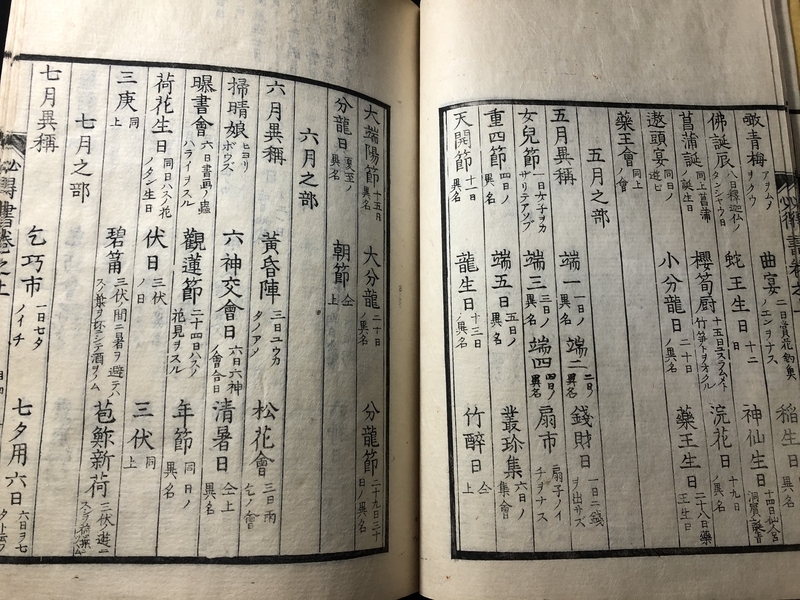 噉青梅 アヲウメヲクウ 曲宴 二日賞花釣魚ノエンヲナス 稲生日
佛誕辰 八日釋迦仏ノタンジヤウ日 蛇王生日 十二日 神仙生日
菖蒲誕 同上菖蒲ノ誕生日 櫻筍厨 十五日ユスラムメト竹笋トヲオクル 浣花日 十九日
遨頭宴 同日ノ遊ビ 小分龍日 二十日ノ異名 藥王生日 二十八日藥王生日
藥王會 同上ノ會
五月之部
五月異稱 端一 一日ノ異名 端二 二日ノ異名 錢財日 一日二錢ヲ出サズ
女兒節 一日女子ヲカサリテアソブ 端三 三日ノ異名 端四 四日ノ異名 扇市 扇子ノイチヲナス
重四節 四日ノ異名 端五日 五日ノ異名 叢珍集 六日ノ集會
天開節 十一日異名 龍生日 十三日ノ異名 竹醉日 仝上
大端陽節 十五日ノ異名 大分龍 二十日ノ異名 分龍節 二十九日三十日ノ異名
分龍日 夏至ノ異名 朝節 仝上
六月之部
六月異稱 黄昏陣 三日ユウカタノアメ 松花會 三日雨乞ノ會
掃晴娘 ヒヨリボウズ 六神交會日 六日六神ノ會合日 清暑日 仝上異名
曝書會 六日書画ノ蟲ハライヲスル 觀蓮節 二十四日ハスノ花見ヲスル 年節 同日ノ異名
荷花生日 同日ハスノ花ノタン生日 伏日 三伏ノ日 三伏 同上
三庚 同上 碧筩 三伏ノ間ニ暑ヲ避テハスノ葉ヲ坏シテ酒ヲノム 苞鮓新荷
七月之部
七月異稱 乞巧市 一日七夕ノイチ 七夕用六日